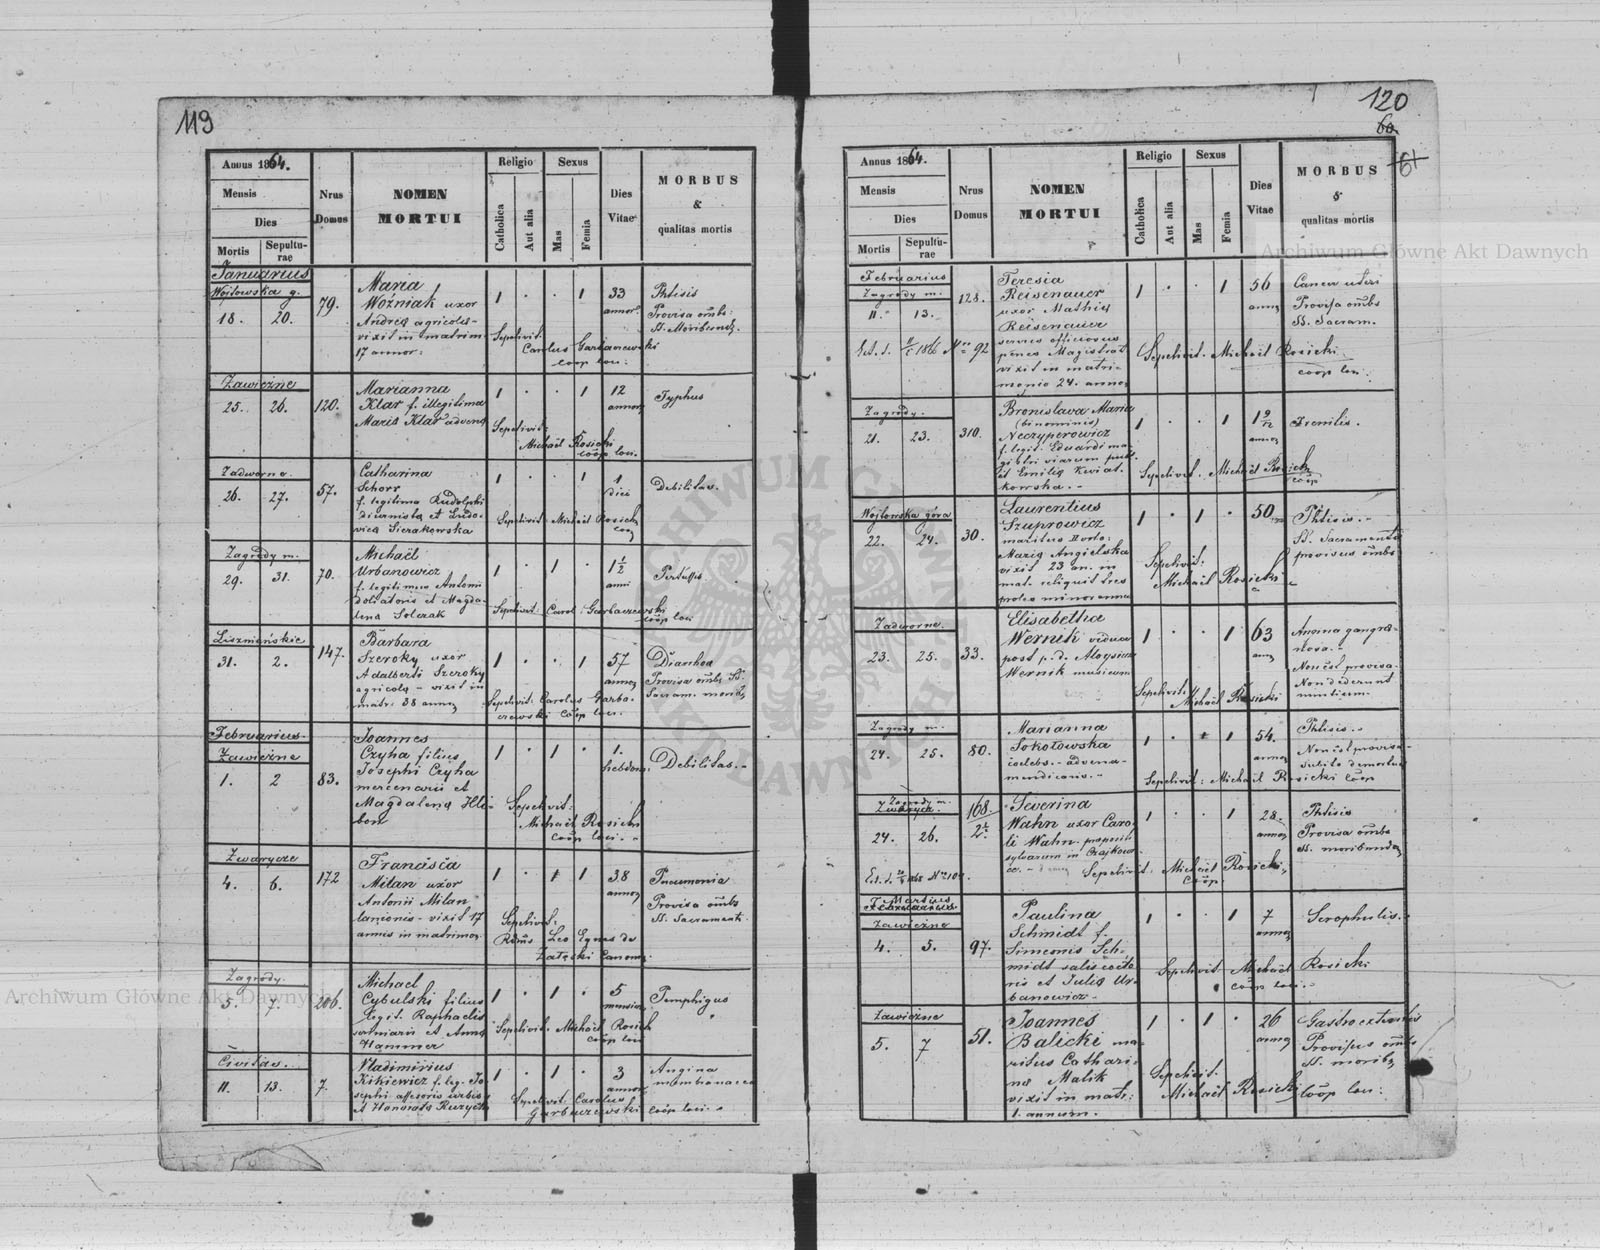 119
Annus 1864.
Mensis
Dies
Mortis
Sepulturae
Nrus Domus
NOMEN MORTUI
Religio
Catholica
Aut alia
Sexus
Mas
Femia
Dies Vitae
MORBUS
&
qualitas mortis
Januarius
Wojtowska g.
18. 20.
79.
Maria
Woźniak uxor
Andreą agricolą
vixit in matrim.
17 annor:
1 . . 1
33
annor.
Phtisis
Provisa omb:
SS. Moribund.
Sepelivit:
Carolus Garbaczewski
coop loci.
Zawieźne
25. 26.
120.
Marianna
Klar f. illegitima
Mariæ Klar advenæ
1 . . 1
12
annor
Typhus
Sepelivit:
Michaël Rosicki
coop loci.
Zadworne
26. 27.
57.
Catharina
Schorr
f. legitima Rudolphi
diurnistæ et Ludo-
vicæ Sierakowska
1 . . 1
1
diei
Debilitas.
Sepelivit: Michaël Rosicki
coop
Zagrody m.
29. 31.
70.
Michaël
Urbanowicz
f. legitimus Antonii
doliatoris et Magda-
lena Solczak
1 . 1 .
1½
anni
Pertussis
Sepelivit: Carol: Garbaczewski
coop loci
Liszniańskie
31. 2.
147.
Barbara
Szeroky uxor
Adalberti Szeroky
agricolæ - vixit in
matr: 38 annor
1 . . 1
57
annor
Diarrhoa
Provisa omb SS.
Sacram. morib
Sepelivit: Carolus Garba-
czewski coop loci.
Februarius
Zawieźne
1. 2
83.
Joannes
Czyha filius
Josephi Czyha
mercenarii et
Magdalenæ Hli-
bon
1 . 1 .
1.
hebdom:
Debilitas.-
Sepelivit:
Michaël Rosicki
coop loci.-
Zwarycze
4. 6.
172
Francisca
Milan uxor
Antonii Milan
lanionis - vixit 17
annis in matrimon
1 . 1
38
annor
Pneumonia
Provisa omb
SS. Sacrament.
Sepelivit:
Rdms Leo Eques de
Załęski Canon:
Zagrody.
5. 7.
206.
Michael
Cybulski filius
legit. Raphaelis
et Annæ
Hammer
1 . 1 .
5
mensium
Pemphigus
Sepelivit: Michaël Rosicki
coop loci
Civitas.
11. 13.
7.
Wladimirius
Kikiewicz f. leg. Jo-
sephi assesoris urbis
et Honorata
1 . 1 .
3
annor
Angina
membranacea
Sepelivit: Carolus
Garbaczewski coop loci.
120
60
61
Annus 1864.
Mensis
Dies
Mortis
Sepulturae
Nrus Domus
NOMEN MORTUI
Religio
Catholica
Aut alia
Sexus
Mas
Femia
Dies Vitae
MORBUS
&
qualitas mortis
Februarius
Zagrody m.
11. 13.
128.
Teresia
Reisenauer
uxor Mathiæ
Reisenauer
servus officiosus
penes Magistrat
vixit in matri-
monio 24. annor
1 . . 1
56
annor
Cancer uteri
Provisa omb
SS. Sacram.
1866 Nro 92
Sepelivit. Michaël Rosicki
coop loci.
Zagrody.
21. 23.
310.
Bronislava Maria
(binominis)
Neczyperowicz
f. legit. Eduardi ma-
gistri viarum publ.
et Emiliæ Kwiat-
kowska.-
1 . . 1
annor
Sepelivit. Michaël Rosicki
coop
Wojtowska góra
22. 24.
30.
Laurentius
Szuprowicz
maritus II voto:
Mariæ Angielska
vixit 23 an. in
mat. reliquit tres
proles minorennes
1 . 1 .
50
Phtisis.-
SS. Sacramentis
provisus omb
Sepelivit:
Michaël Rosicki
Zadworne.
23. 25.
33.
Elisabetha
Wernik vidua
post p.d. Aloysium
Wernik musicum
1 . . 1
63
ann
Angina gangræ-
nosa.-
Non est provisa.
Non dederunt
nuntium.
Sepelivit:
Michaël Rosicki
Zagrody m.
24. 25.
80.
Marianna
Sokołowska
coelebs.- advena
1 . 1
54.
annor
Phtisis.-
Non est provisa-
subito demortua
Sepelivit: Michaël Rosicki coop
Zagrody m.
Zwarycz.
24. 26.
168.
Severina
Wahn uxor Caro-
li Wahn
sylvarum in
1 . . 1
28.
annor
Phtisis
Provisa omb
SS. moribunda
1868
Sepelivit: Michaël Rosicki,
Coop.
Martius
Februarius
Zawieźne
4. 5.
97.
Paulina
Schmidt f.
Simeonis Sch-
midt salis cocto-
ris et Juliæ Ur-
banowicz-
1 . . 1
7
annor
Scrophulis.
Sepelivit. Michaël Rosicki
coop loci.-
Zawieźne
5. 7
51.
Joannes
Balicki ma-
ritus Cathari-
næ Malik
vixit in matr:
1. annum.
1 . 1 .
26
annor
Provisus omb
SS. morib
Sepelivit.
Michaël Rosicki coop loci:
Archiwum Główne Akt Dawnych
Archiwum Główne Akt Dawnych
ARCHIWUM GŁÓWNE AKT DAWNYCH